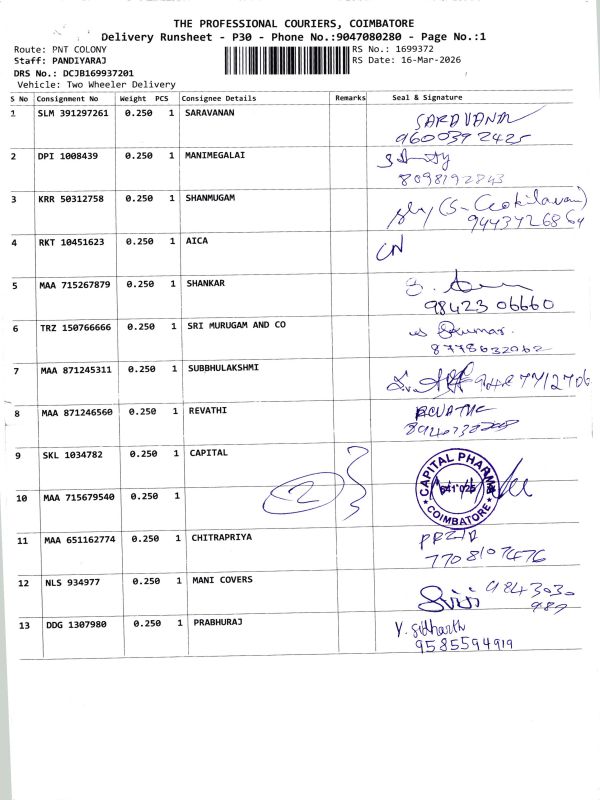 THE PROFESSIONAL COURIERS, COIMBATORE
Delivery Runsheet - P30 - Phone No.:9047080280 - Page No.:1
Route: PNT COLONY RS No.: 1699372
Staff: PANDIYARAJ RS Date: 16-Mar-2026
DRS No.: DCJB169937201
Vehicle: Two Wheeler Delivery
S No Consignment No Weight PCS Consignee Details Remarks Seal & Signature
1 SLM 391297261 0.250 1 SARAVANAN SARAVANAN
9600392425
2 DPI 1008439 0.250 1 MANIMEGALAI
8098192843
3 KRR 50312758 0.250 1 SHANMUGAM
9443726864
4 RKT 10451623 0.250 1 AICA CN
5 MAA 715267879 0.250 1 SHANKAR
98423 06660
6 TRZ 150766666 0.250 1 SRI MURUGAM AND CO
8778632062
7 MAA 871245311 0.250 1 SUBBHULAKSHMI
8 MAA 871246560 0.250 1 REVATHI
9 SKL 1034782 0.250 1 CAPITAL CAPITAL PHARMA
641 025
COIMBATORE
10 MAA 715679540 0.250 1 2
11 MAA 651162774 0.250 1 CHITRAPRIYA
7708107476
12 NLS 934977 0.250 1 MANI COVERS Siji 9843030
987
13 DDG 1307980 0.250 1 PRABHURAJ Y. Siddharth
9585594919